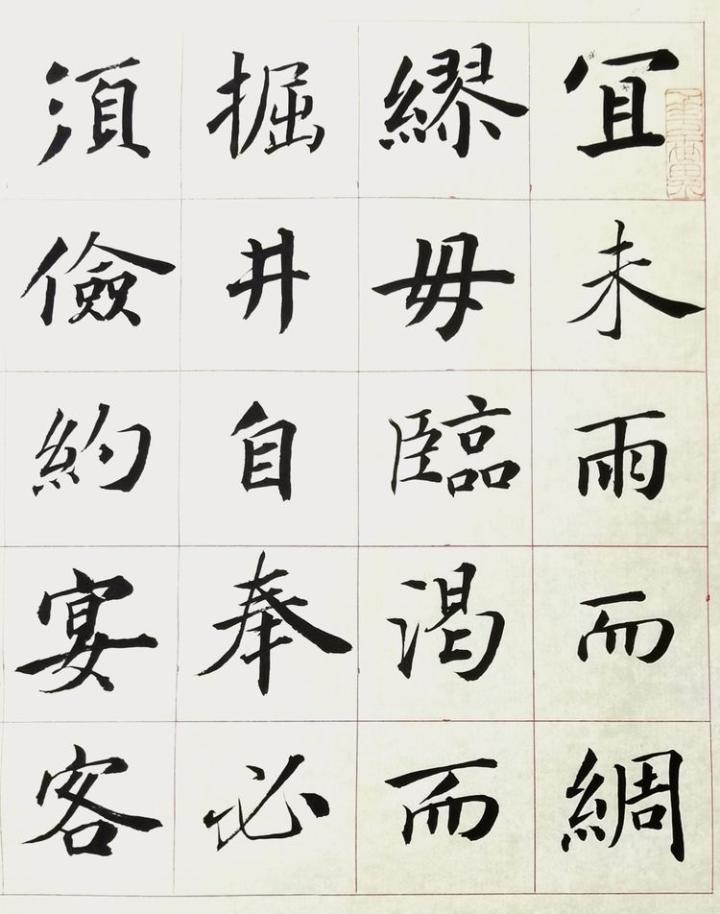 宜未雨而綢
繆毋臨渴而
掘井自奉必
須儉約宴客